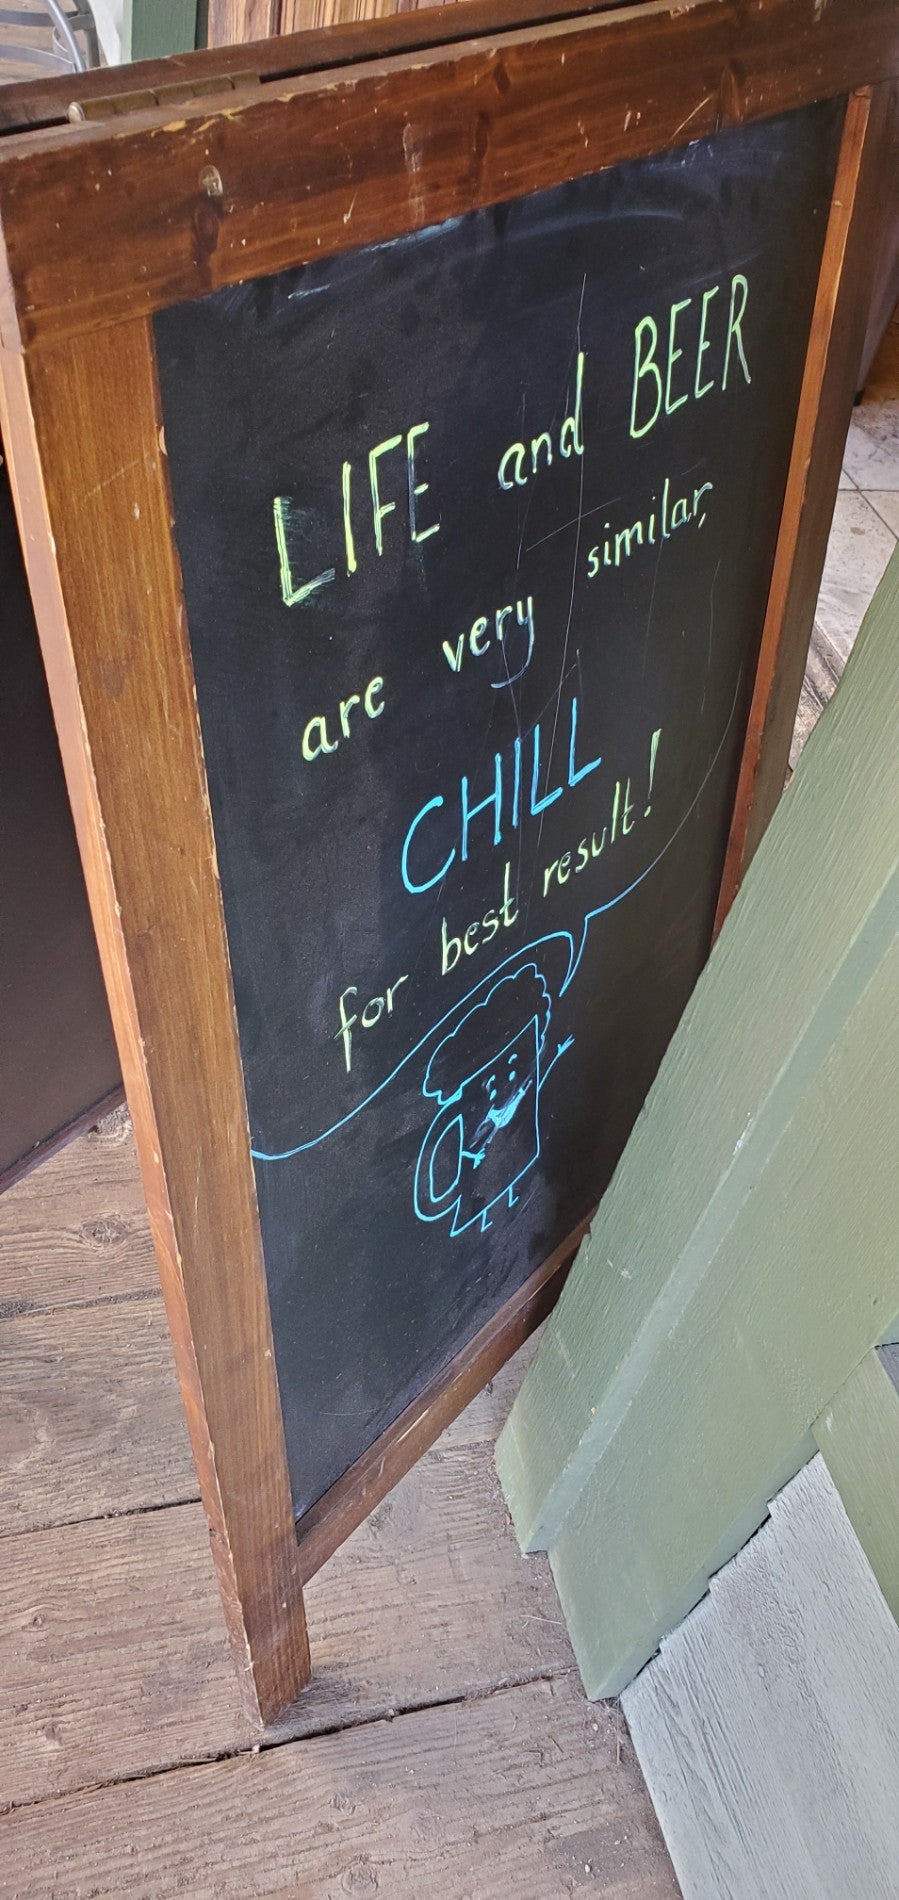 LIFE and BEER
are very similar,
CHILL
for best result!